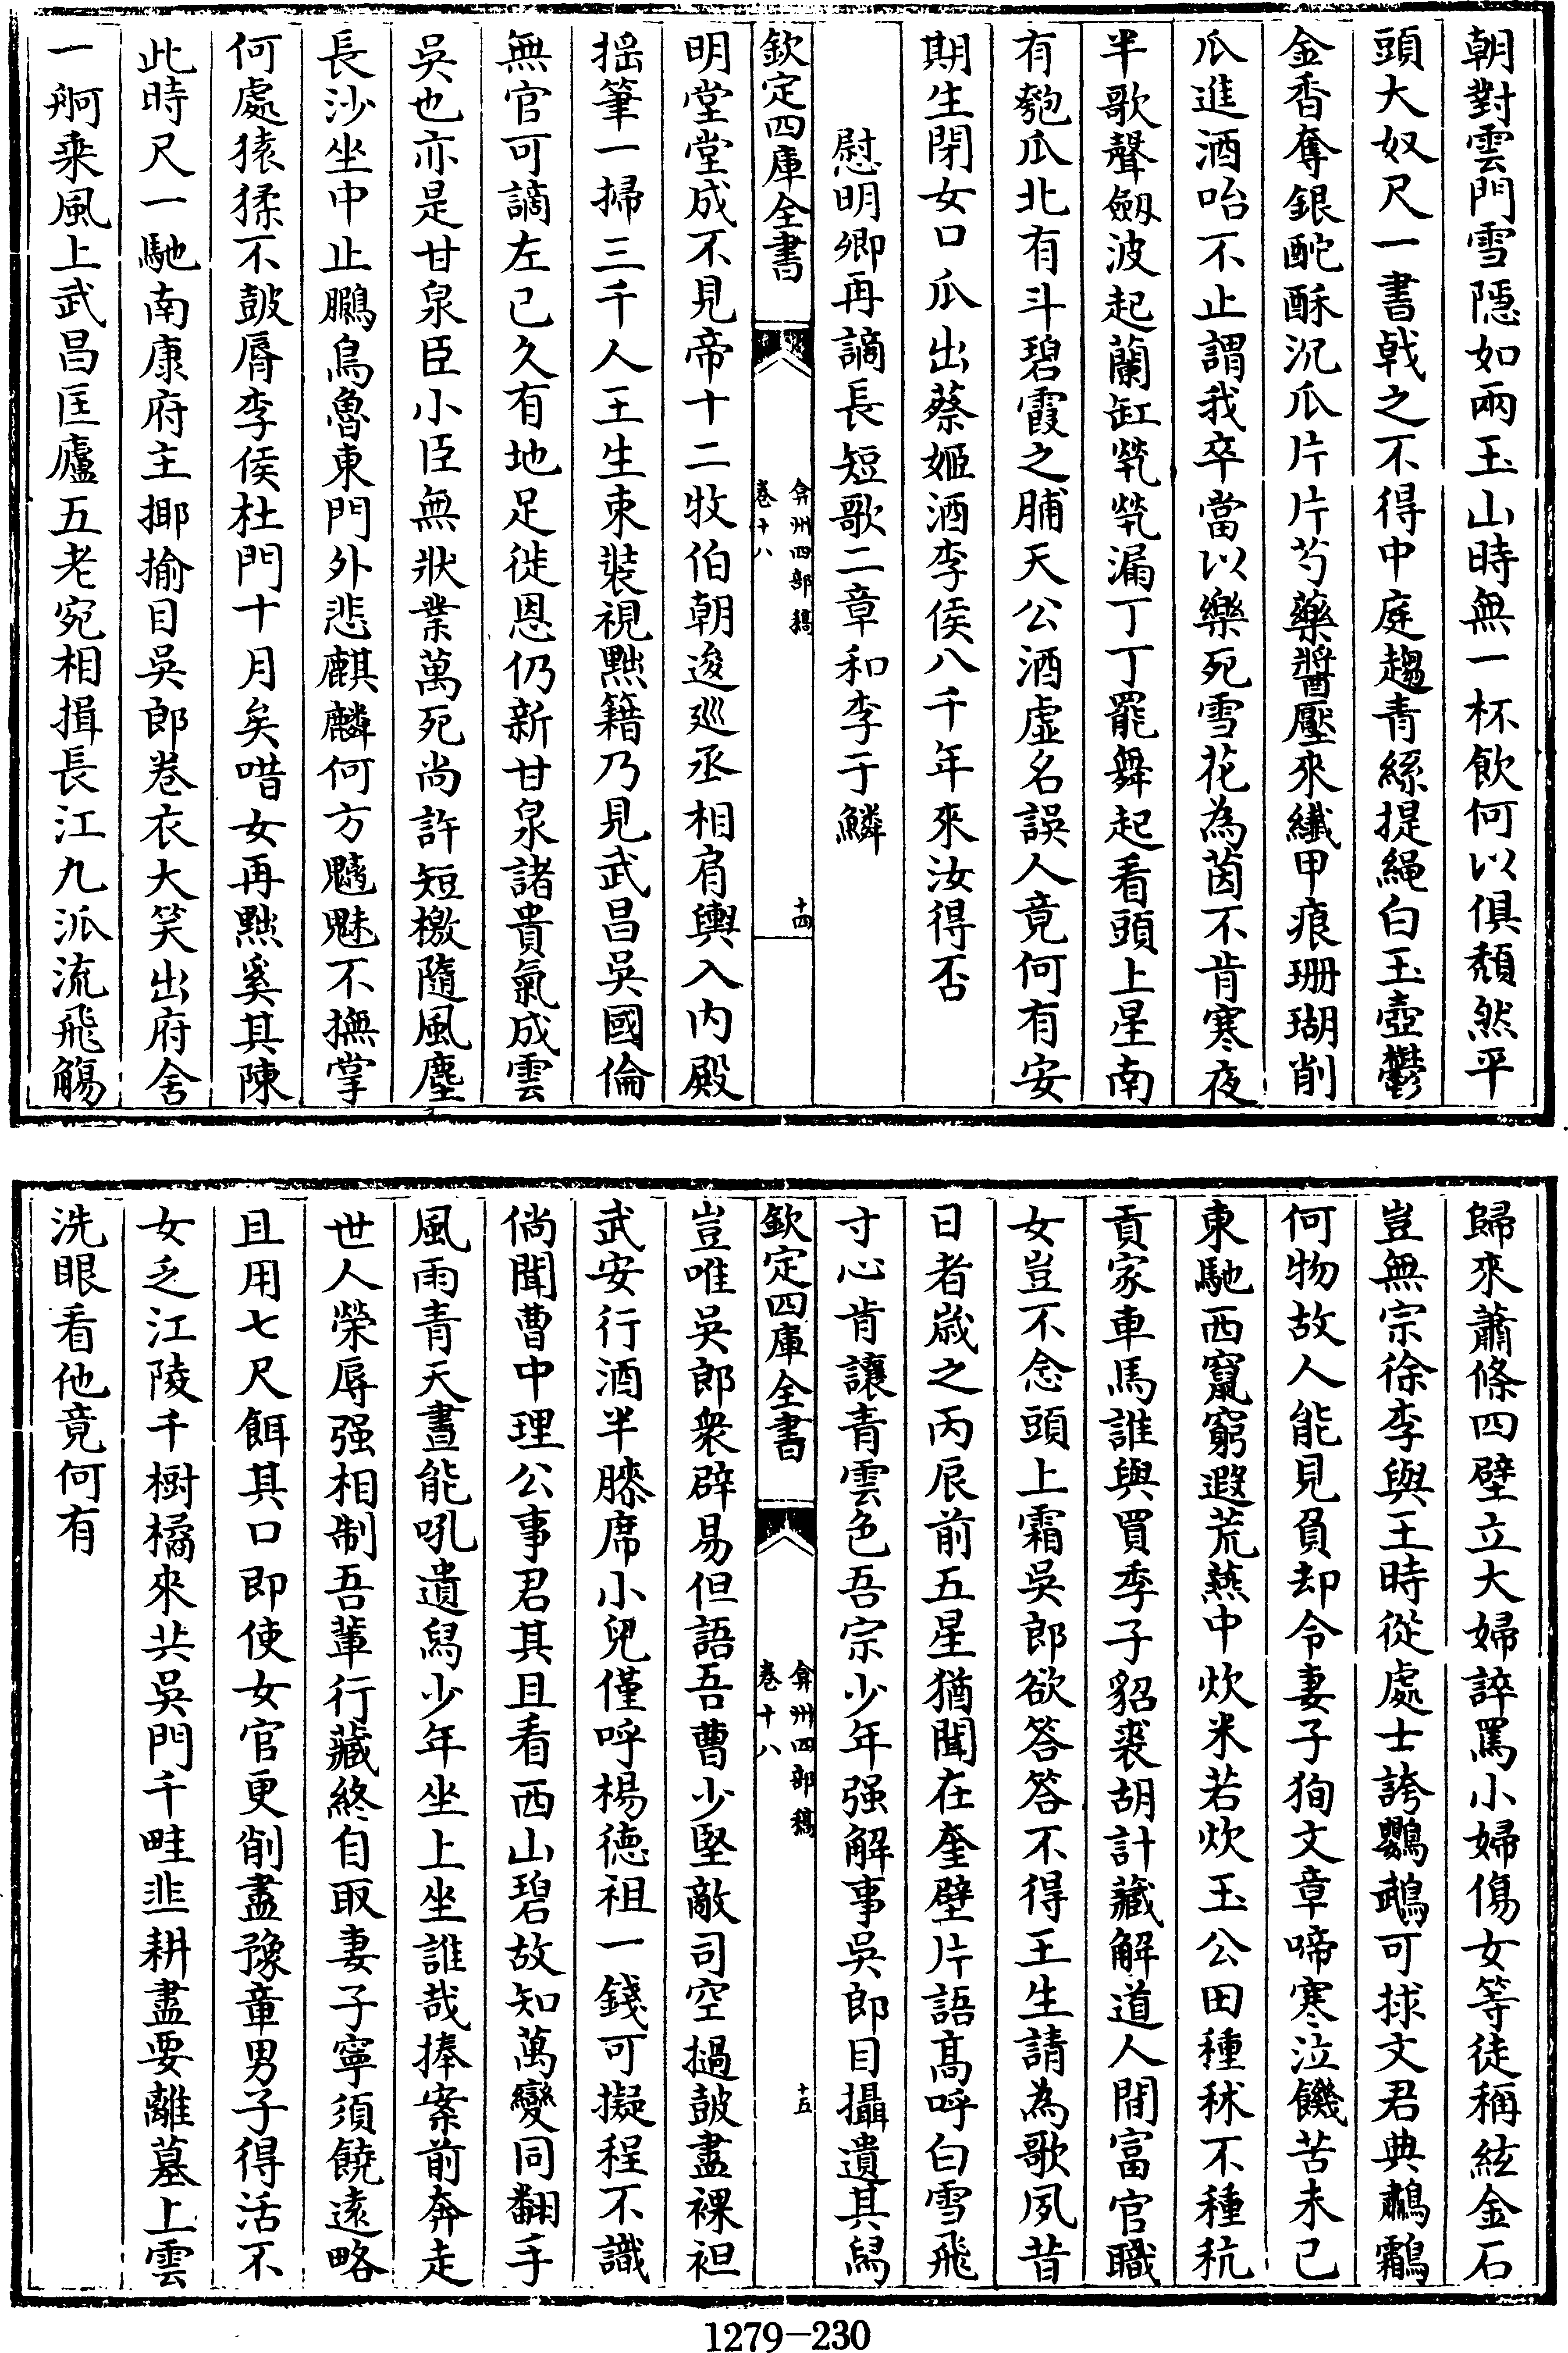 朝對雲門雪隱如兩玉山時無一杯飲何以俱頹然平
頭大奴尺一書戟之不得中庭趨青絲提繩白玉壺鬱
金香奪銀酡酥沉瓜片片芍藥醬壓來纖甲痕珊瑚削
瓜進酒咍不止謂我卒當以樂死雪花為茵不肯寒夜
半歌聲劔波起蘭缸煢煢漏丁丁罷舞起看頭上星南
有匏瓜北有斗碧霞之脯天公酒虛名誤人竟何有安
期生閉女口瓜出蔡姬酒李侯八千年來汝得否
慰明卿再謫長短歌二章和李于鱗
欽定四庫全書
弇州四部稿
卷十八
十四
明堂堂成不見帝十二牧伯朝逡廵丞相肩輿入内殿
摇筆一掃三千人王生束裝視黜籍乃見武昌吳國倫
無官可謫左已久有地足徙恩仍新甘泉諸貴氣成雲
吳也亦是甘泉臣小臣無狀業萬死尚許短檄隨風塵
長沙坐中止鵩鳥魯東門外悲麒麟何方魑魅不撫掌
何處猿猱不鼓脣李侯杜門十月矣唶女再黜奚其陳
此時尺一馳南康府主揶揄目吳郎卷衣大笑出府舍
一舸乘風上武昌匡廬五老宛相揖長江九派流飛觴
歸來蕭條四壁立大婦誶罵小婦傷女等徒稱紘金石
豈無宗徐李與王時從處士誇鸚鵡可捄文君典鷫鸘
何物故人能見負却令妻子狥文章啼寒泣饑苦未已
東馳西竄窮遐荒燕中炊米若炊玉公田種秫不種秔
貢家車馬誰與買季子貂裘胡計藏解道人間富官職
女豈不念頭上霜吳郎欲答答不得王生請為歌夙昔
日者歲之丙辰前五星猶聞在奎壁片語髙呼白雪飛
寸心肯讓青雲色吾宗少年强解事吳郎目攝遺其舄
欽定四庫全書
弇州四部稿
卷十八
十五
豈唯吳郎衆辟易但語吾曹少堅敵司空撾鼓盡裸袒
武安行酒半膝席小兒僅呼楊德祖一錢可擬程不識
倘聞曹中理公事君其且看西山碧故知萬變同翻手
風雨青天晝能吼遺舄少年坐上坐誰哉捧案前奔走
世人榮辱强相制吾輩行藏終自取妻子寧須饒遠略
且用七尺餌其口即使女官更削盡豫章男子得活不
女乏江陵千樹橘來共吳門千畦韭耕盡要離墓上雲
洗眼看他竟何有
1279-230